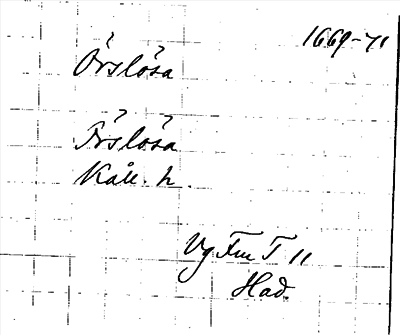 1669-71
Örslösa
Örslösa
Kåll. h.
Vg Fm T 11
Had.